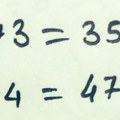 73 = 35
4 = 47